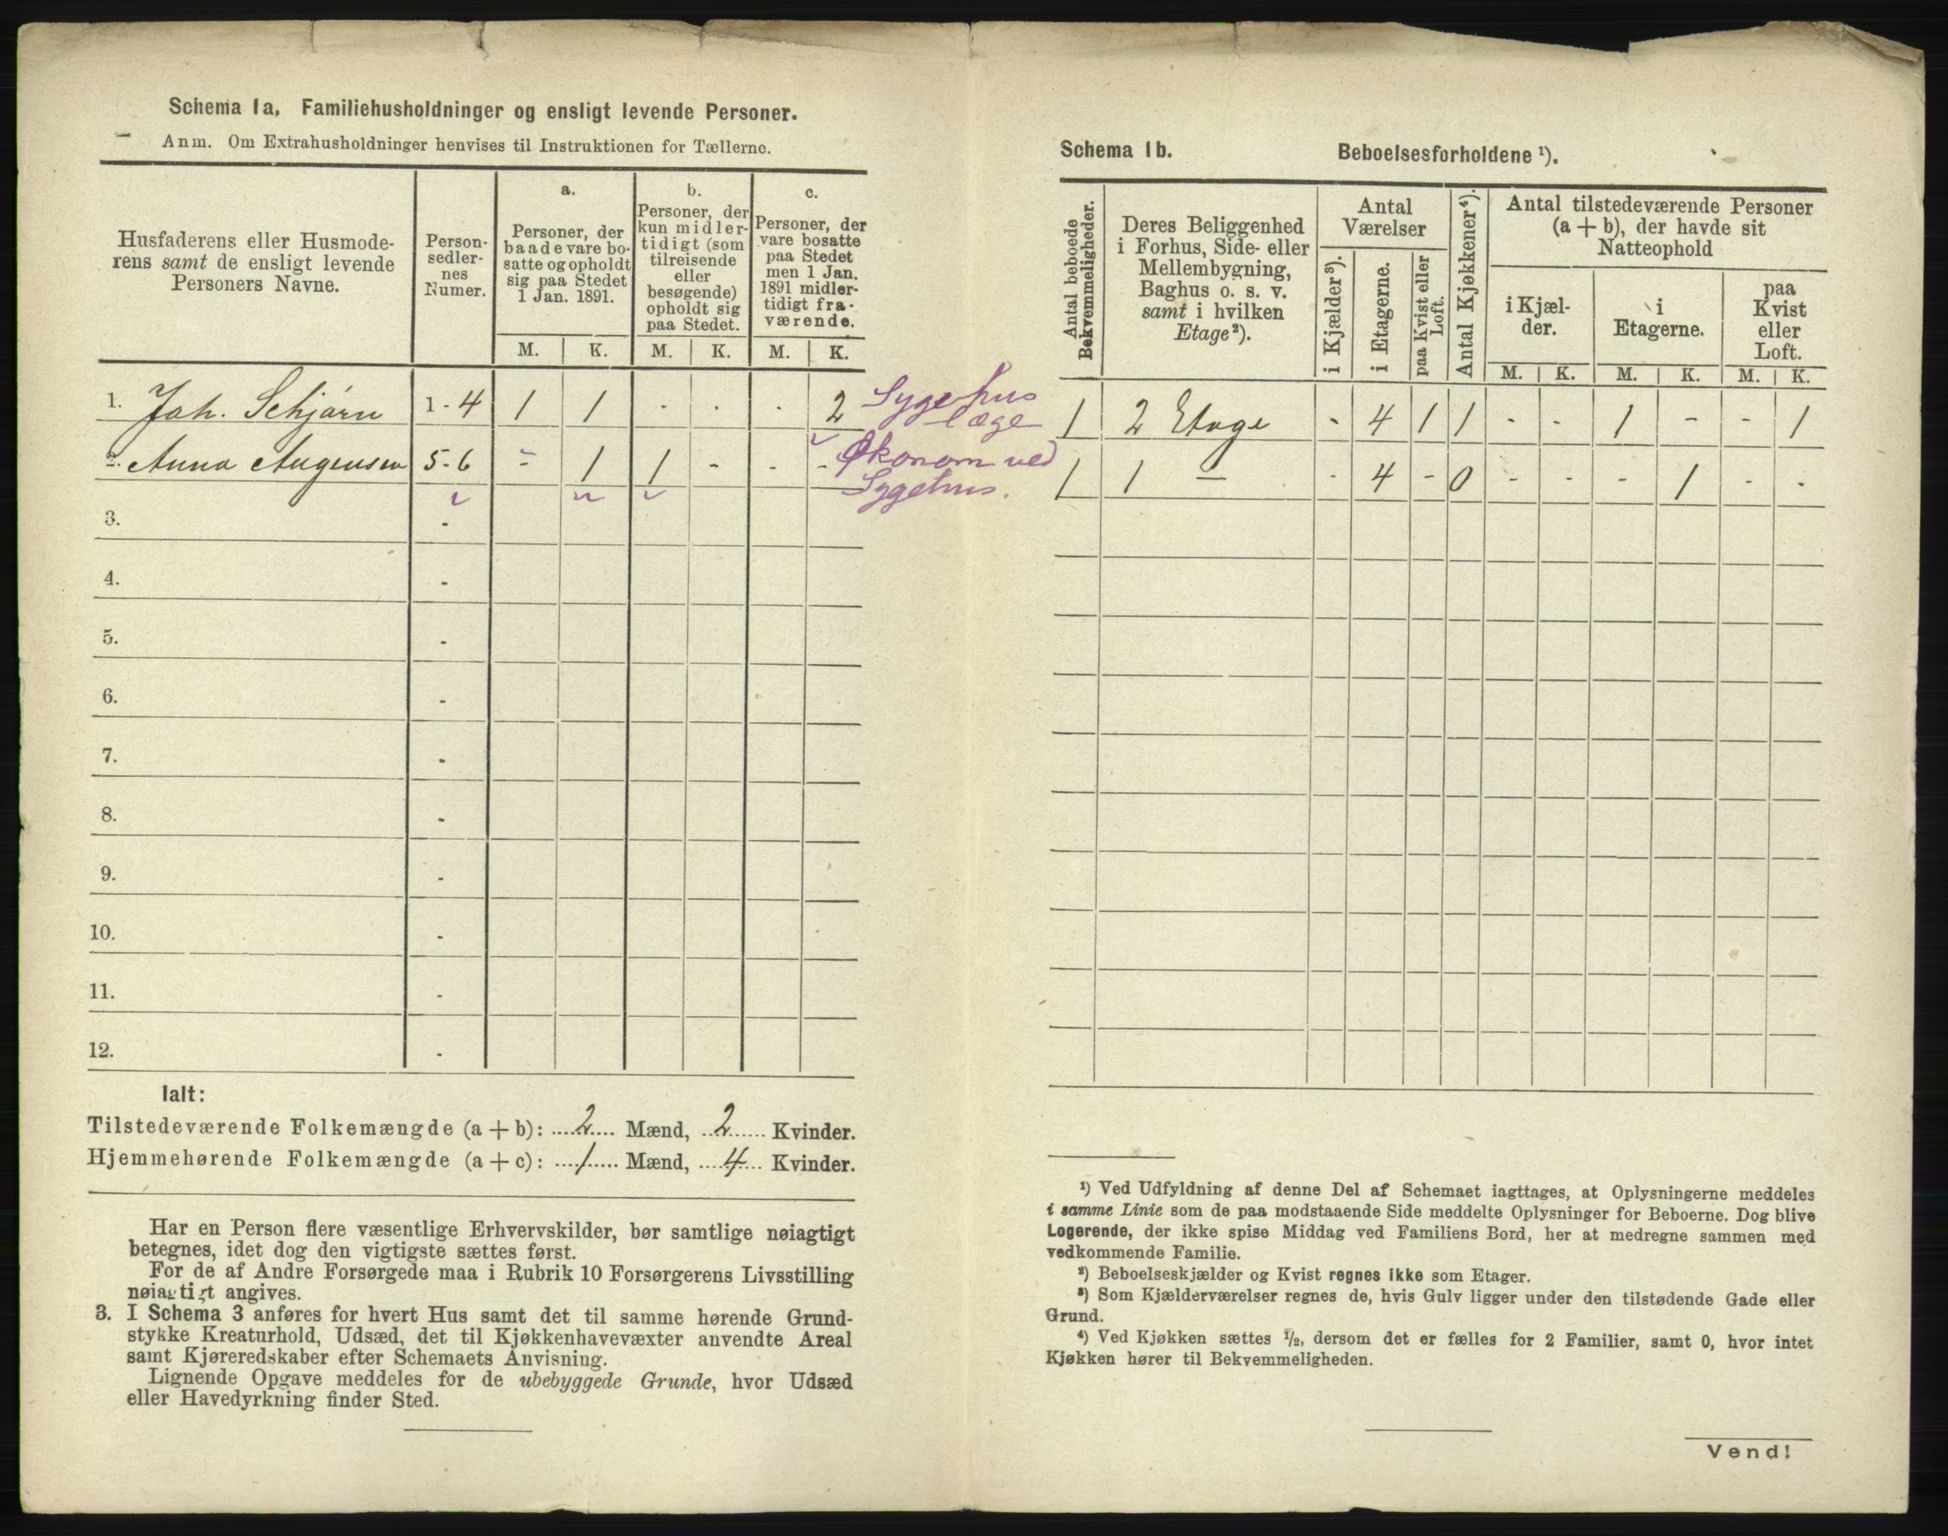 Schema 1a. Familiehusholdninger og ensligt levende Personer.
Anm. Om Extrahusholdninger henvises til Instruktionen for Tællerne.
Husfaderens eller Husmode-
rens samt de ensligt levende
Personers Navne.
Person-
sedler-
nes
Numer.
a.
Personer, der
baade vare bo-
satte og opholdt
sig paa Stedet
1 Jan. 1891.
b.
Personer, der
kun midler-
tidigt (som
tilreisende
eller
besøgende)
opholdt sig
paa Stedet.
c.
Personer, der
vare bosatte
paa Stedet
men 1 Jan.
1891 midler-
tidigt fra-
værende.
M. K. M. K. M. K.
1. Joh. Schjørn 1-4 1 1 - - - 2 Sygehus
læge
2. Anna Augensen 5-6 - 1 1 - - - Økonom ved
Sygehus.
3. -
4. -
5. -
6. -
7. -
8. -
9. -
10. -
11. -
12. -
Ialt:
Tilstedeværende Folkemængde (a + b): 2 Mænd, 2 Kvinder.
Hjemmehørende Folkemængde (a + c): 1 Mænd, 4 Kvinder.
Har en Person flere væsentlige Erhvervskilder, bør samtlige nøiagtigt
betegnes, idet dog den vigtigste sættes først.
For de af Andre Forsørgede maa i Rubrik 10 Forsørgerens Livsstilling
nøiagtigt angives.
3. I Schema 3 anføres for hvert Hus samt det til samme hørende Grund-
stykke Kreaturhold, Udsæd, det til Kjøkkenhavevæxter anvendte Areal
samt Kjøreredskaber efter Schemaets Anvisning.
Lignende Opgave meddeles for de ubebyggede Grunde, hvor Udsæd
eller Havedyrkning finder Sted.
Schema 1b. Beboelsesforholdene ¹).
Antal beboede
Bekvemmeligheder.
Deres Beliggenhed
i Forhus, Side- eller
Mellembygning,
Baghus o. s. v.
samt i hvilken
Etage²).
Antal
Værelser
i Kjælder³).
i Etagerne.
paa Kvist eller
Loft.
Antal Kjøkkener⁴).
Antal tilstedeværende Personer
(a + b), der havde sit
Natteophold
i Kjæl-
der.
i
Etagerne.
paa
Kvist
eller
Loft.
M. K. M. K. M. K.
1 2 Etage - 4 1 1 - - 1 - - 1
1 1 — - 4 - 0 - - - 1 - -
¹) Ved Udfyldning af denne Del af Schemaet iagttages, at Oplysningerne meddeles
i samme Linie som de paa modstaaende Side meddelte Oplysninger for Beboerne. Dog blive
Logerende, der ikke spise Middag ved Familiens Bord, her at medregne sammen med
vedkommende Familie.
²) Beboelseskjælder og Kvist regnes ikke som Etager.
³) Som Kjælderværelser regnes de, hvis Gulv ligger under den tilstødende Gade eller
Grund.
⁴) Ved Kjøkken sættes ½, dersom det er fælles for 2 Familier, samt 0, hvor intet
Kjøkken hører til Bekvemmeligheden.
Vend!